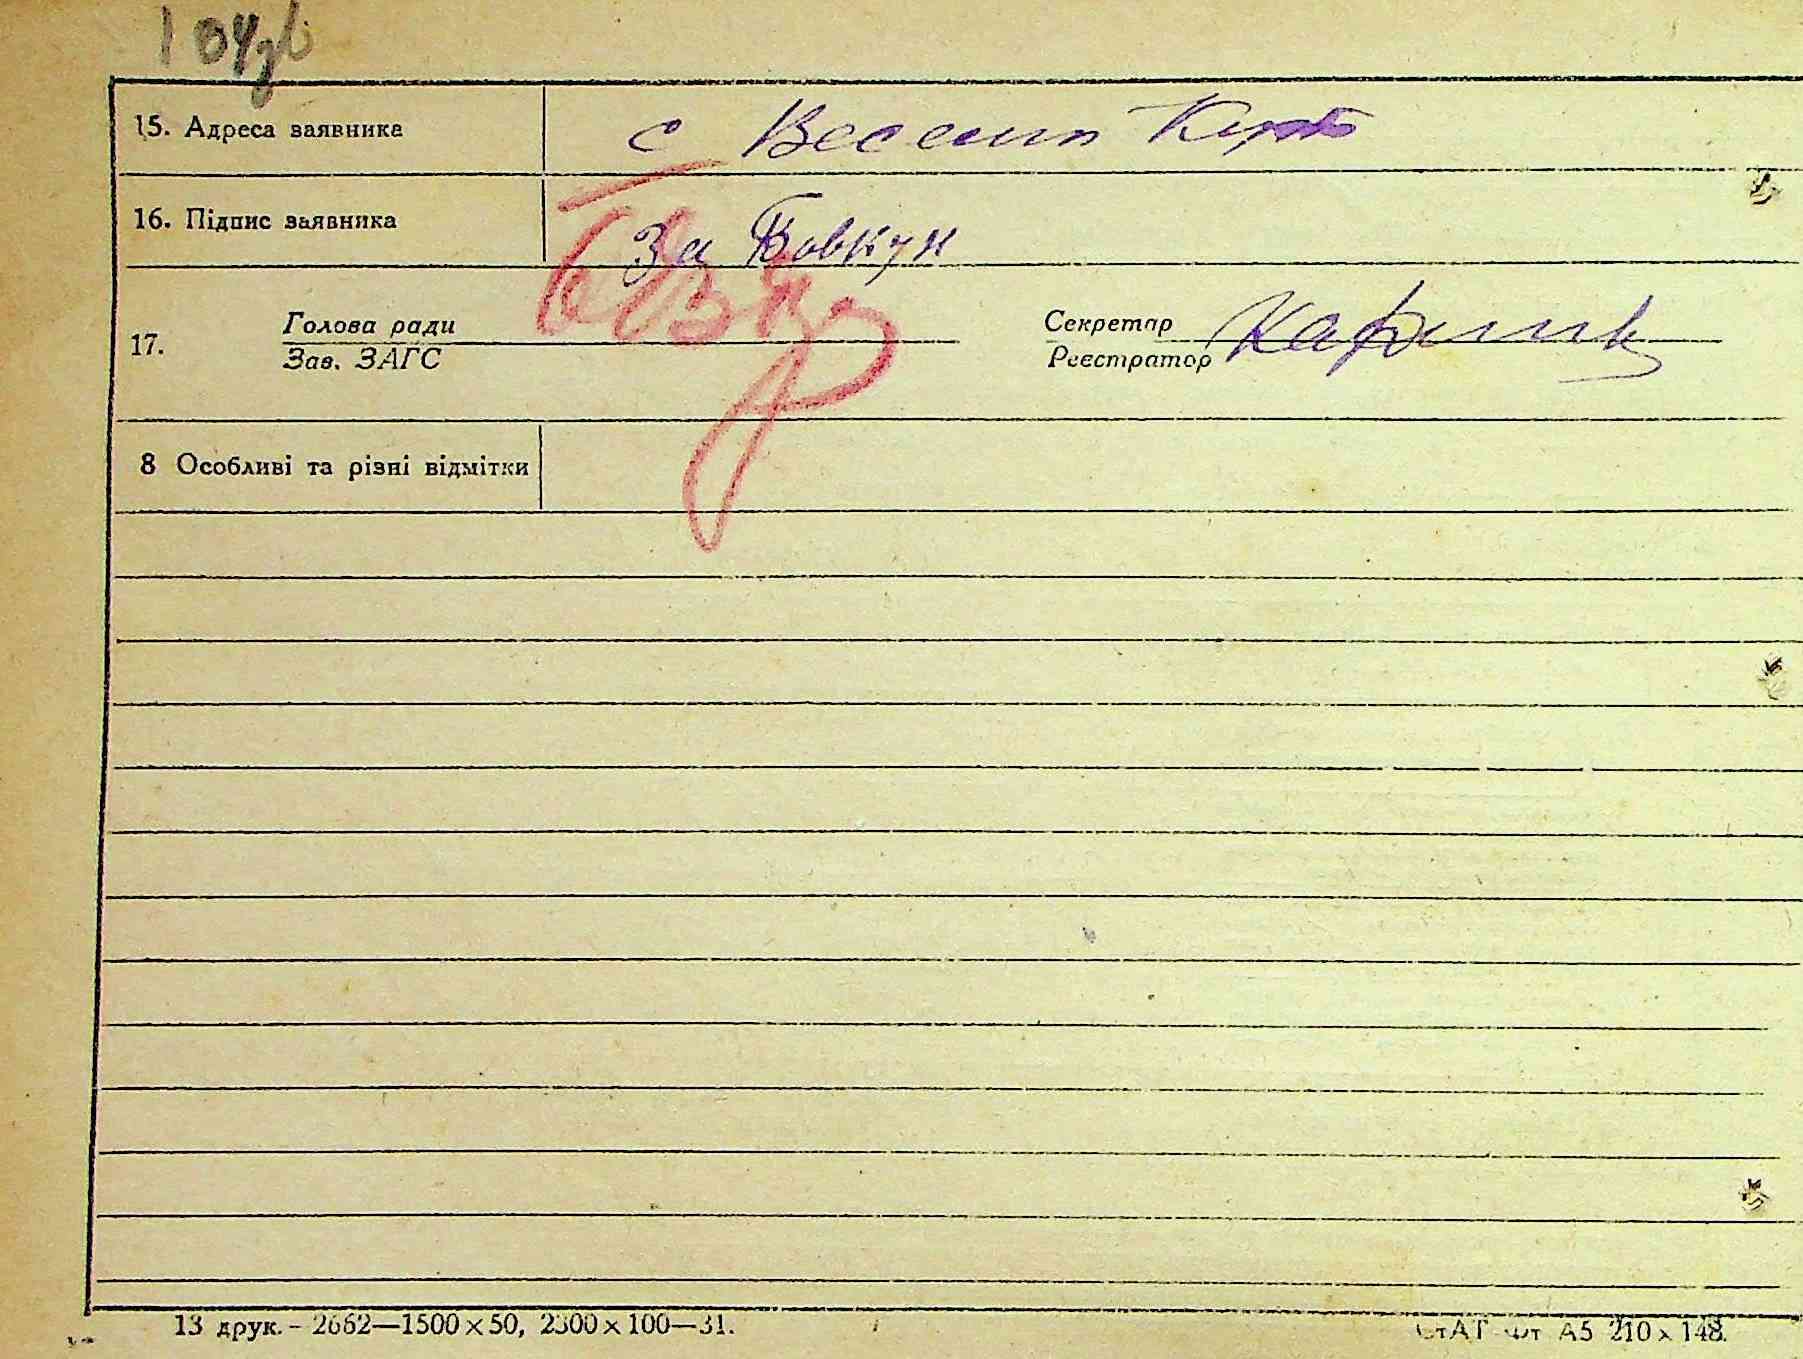 104зв
15. Адреса заявника с Веселий Кут
16. Підпис заявника За Бовкун
17. Голова ради Секретар
Зав. ЗАГС Реєстратор
8 Особливі та різні відмітки
13 друк. - 2662—1500×50, 2300×100—31.
А5 210 × 148.